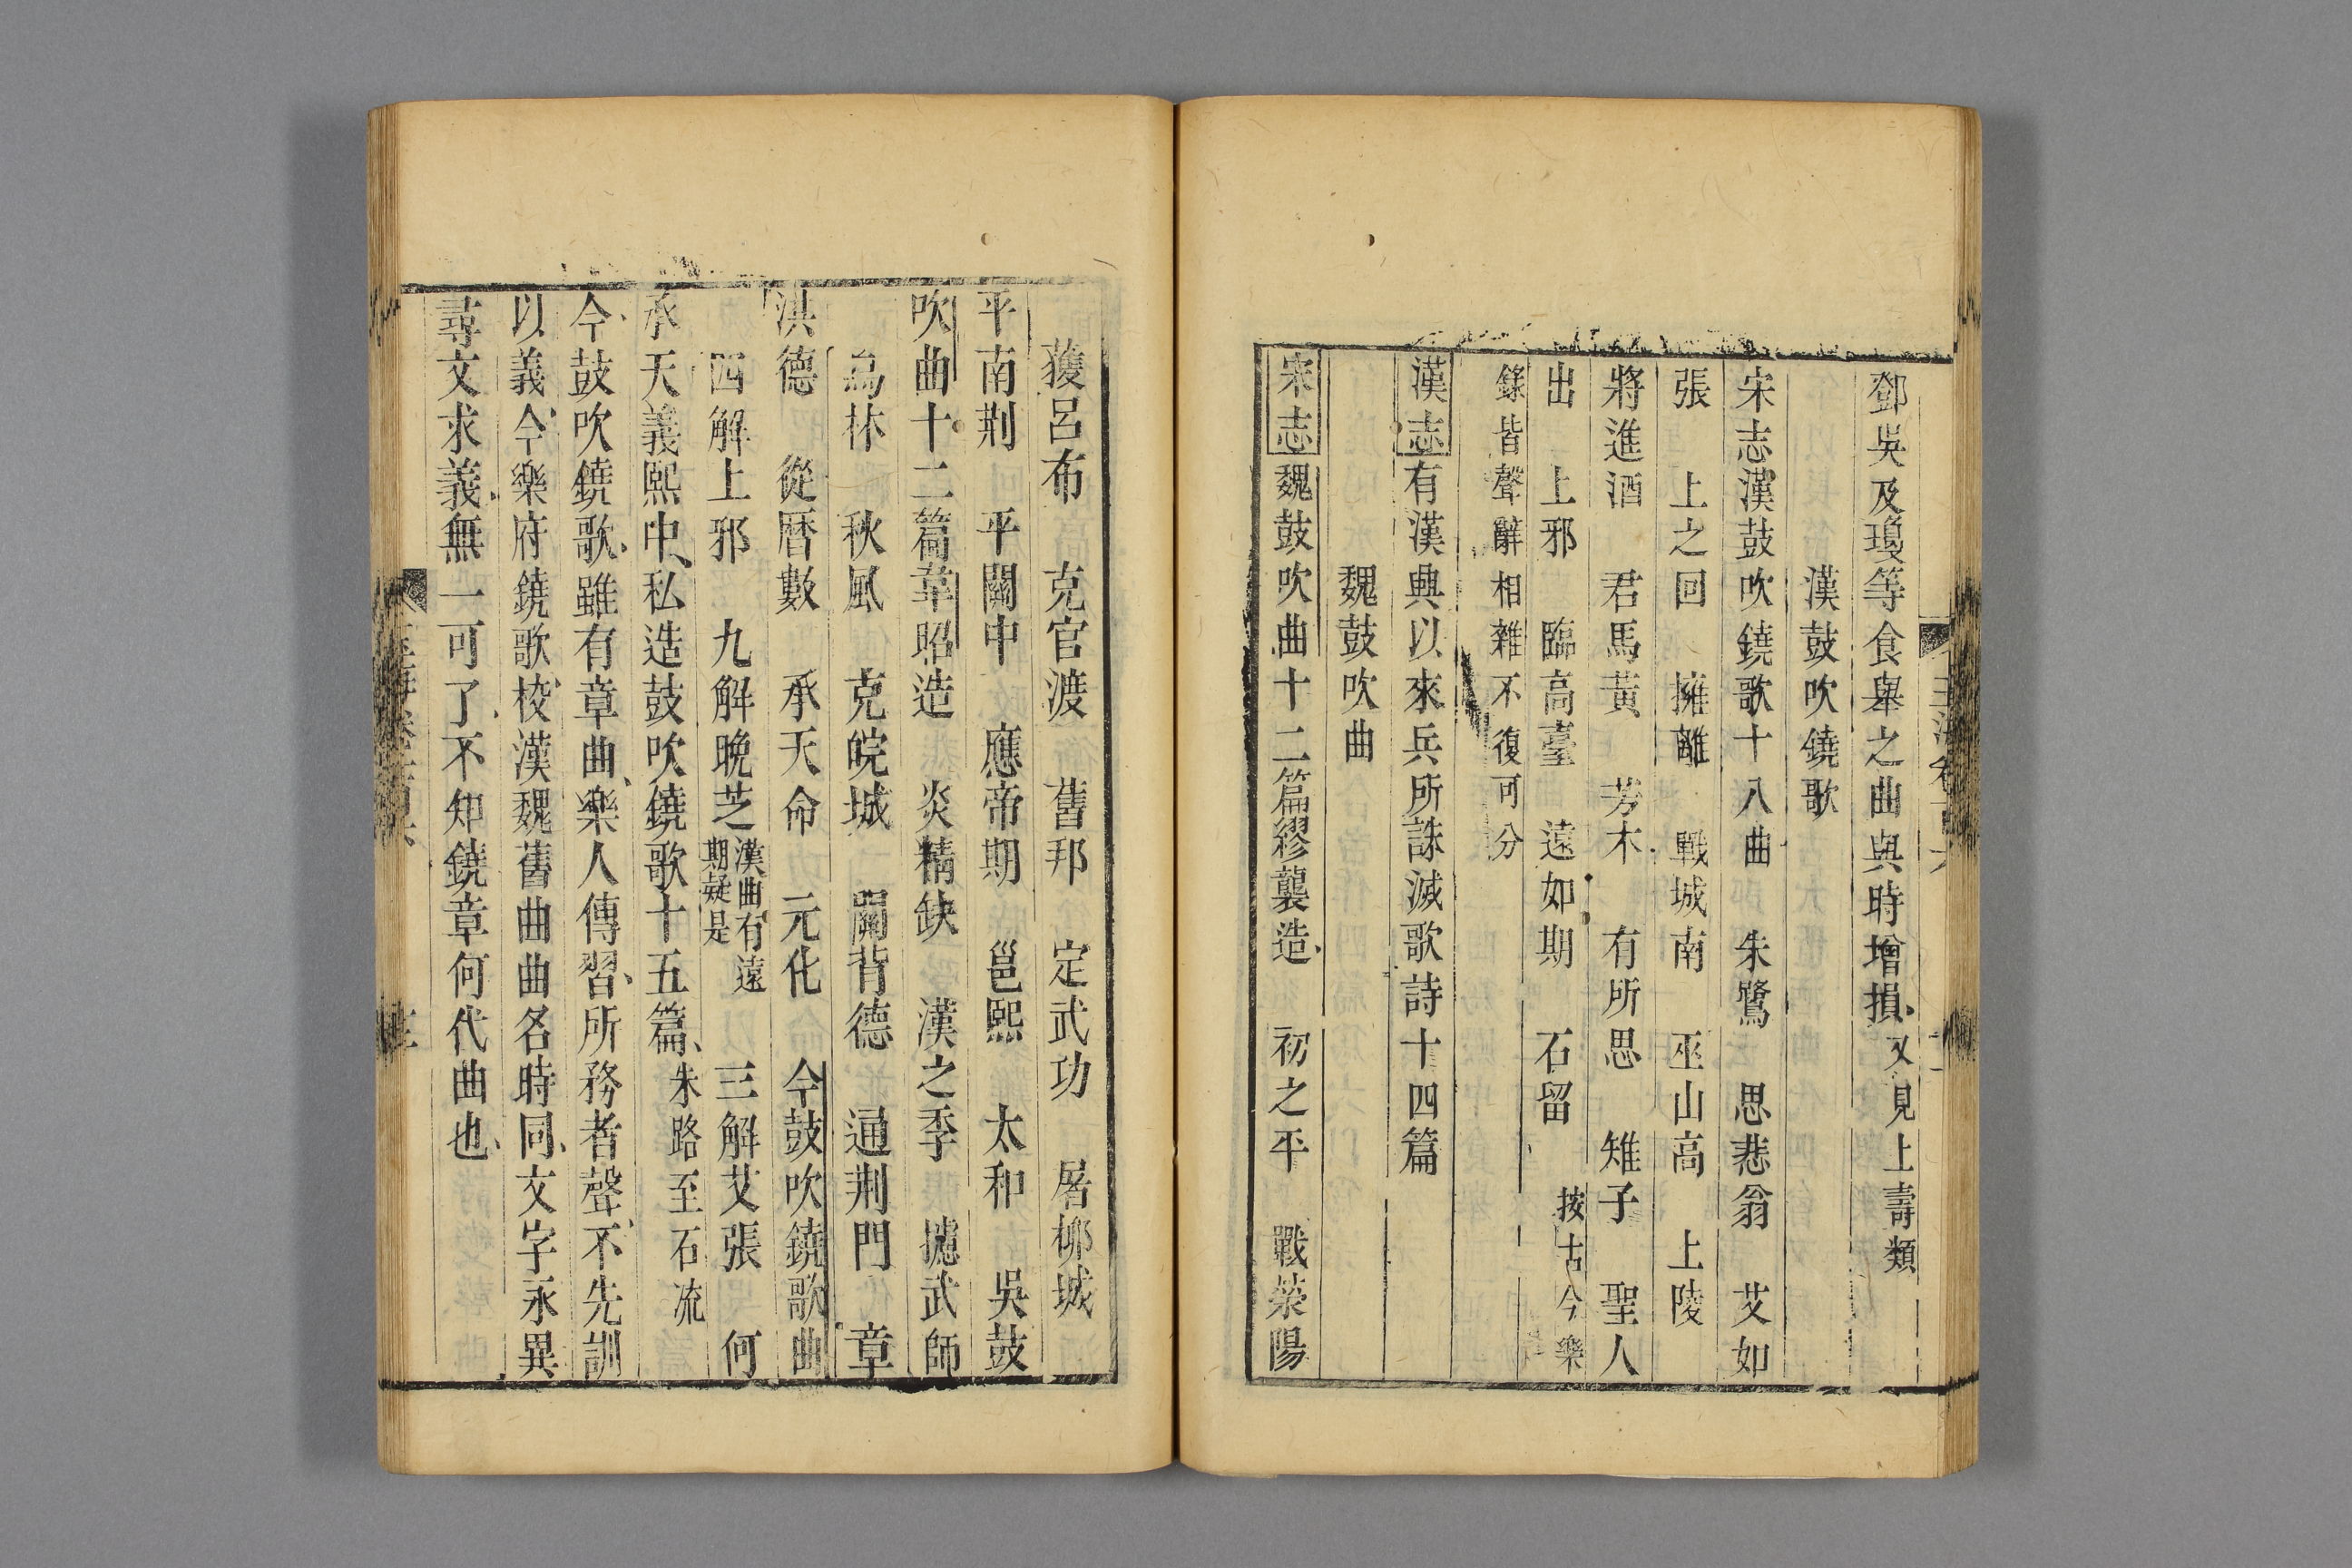 鄧吳及瓊等食舉之曲與時增損又見上壽類
漢鼓吹鐃歌
宋志漢鼓吹鐃歌十八曲 朱鷺 思悲翁 艾如
張 上之回 擁離 戰城南 巫山高 上陵
將進酒 君馬黃 芳木 有所思 雉子 聖人
出 上邪 臨高臺 遠如期 石留 按古今樂
錄皆聲辭相雜不復可分
漢志有漢興以來兵所誅滅歌詩十四篇
魏鼓吹曲
宋志魏鼓吹曲十二篇繆襲造 初之平 戰滎陽
獲呂布 克官渡 舊邦 定武功 屠柳城
平南荆 平關中 應帝期 邕熙 太和 吳鼓
吹曲十二篇韋昭造 炎精缺 漢之季 攄武師
烏林 秋風 克皖城 關背德 通荆門 章
洪德 從曆數 承天命 元化 今鼓吹鐃歌曲
四解上邪 九解晚芝漢曲有遠期疑是 三解艾張 何
承天義熙中私造鼓吹鐃歌十五篇朱路至石流
今鼓吹鐃歌雖有章曲樂人傳習所務者聲不先訓
以義今樂府鐃歌校漢魏舊曲曲名時同文字永異
尋文求義無一可了不知鐃章何代曲也